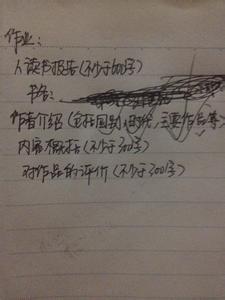 作业:
人读书报告(不少于600字)
书名:
作者介绍(包括国别,时代,主要作品等)
内容概括(不少于300字)
对作品的评价(不少于300字)